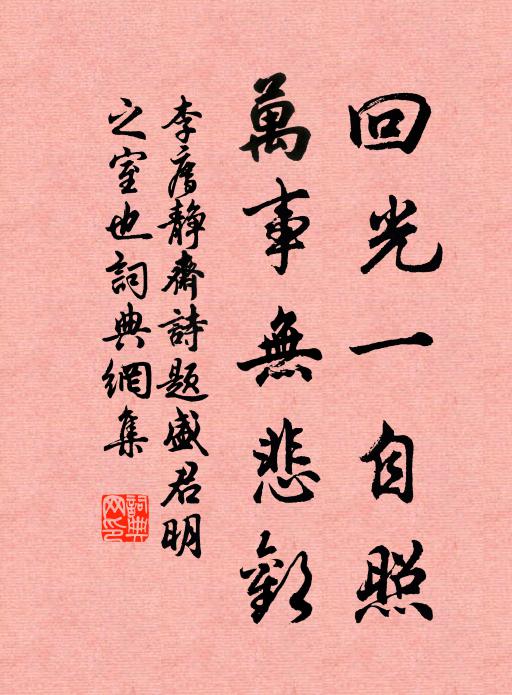 回光一自照
萬事無悲歡
李廌靜齋詩題盛君明
之室也詞典網集
詞典
网印